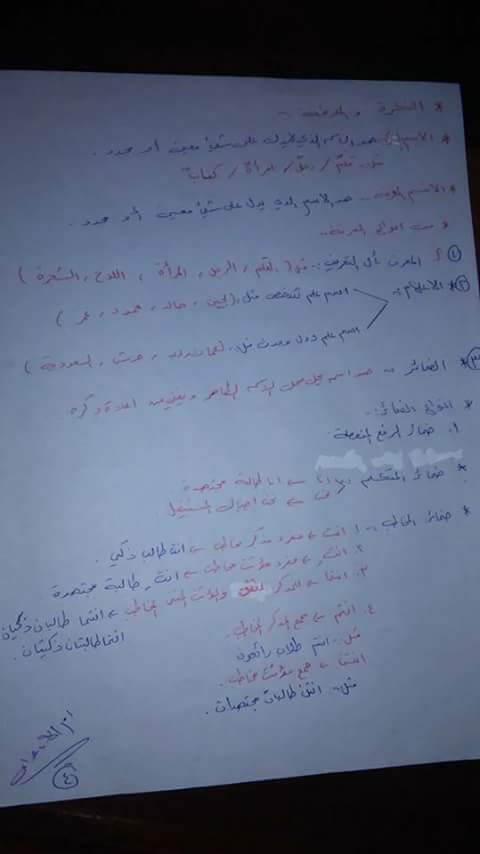 * النكرة والمعرفة :-
* الاسم النكرة هو الاسم الذي لا يدل على شيء معين أو محدد .
مثل قلم / رجل / امرأة / كتاب
* الاسم المعرفة هو الاسم الذي يدل على شيء معين أو محدد .
* ومن أنواع المعرفة :-
١ المعرف بأل التعريف :- مثل ( القلم ، الرجل ، المرأة ، اللوح ، الشجرة )
٢ * الأعلام :-
اسم علم شخص مثل ( ، خالد ، محمود ، عمر )
اسم علم دول ومدن مثل ( عمان ، ، السعودية )
٣ * الضمائر :- هو اسم يحل محل الاسم الظاهر ويغني عن اعادة ذكره
* أنواع الضمائر :-
١. ضمائر الرفع المنفصلة
* ضمائر المتكلم :- انا ← انا طالبة مجتهدة
نحن ← نحن اجيال المستقبل
* ضمائر المخاطب :- ١. انتَ ← مفرد مذكر مخاطب ← انت طالب ذكي .
٢. انتِ ← مفرد مؤنث مخاطب ← انتِ طالبة مجتهدة
٣. انتما ← المذكر والمؤنث المثنى المخاطب ← انتما طالبان ذكيان
انتما طالبتان ذكيتان .
٤. انتم ← جمع المذكر المخاطب .
مثل :- انتم طلاب رائعون
انتن ← جمع مؤنث مخاطب .
مثل :- انتن طالبات مجتهدات .
٤